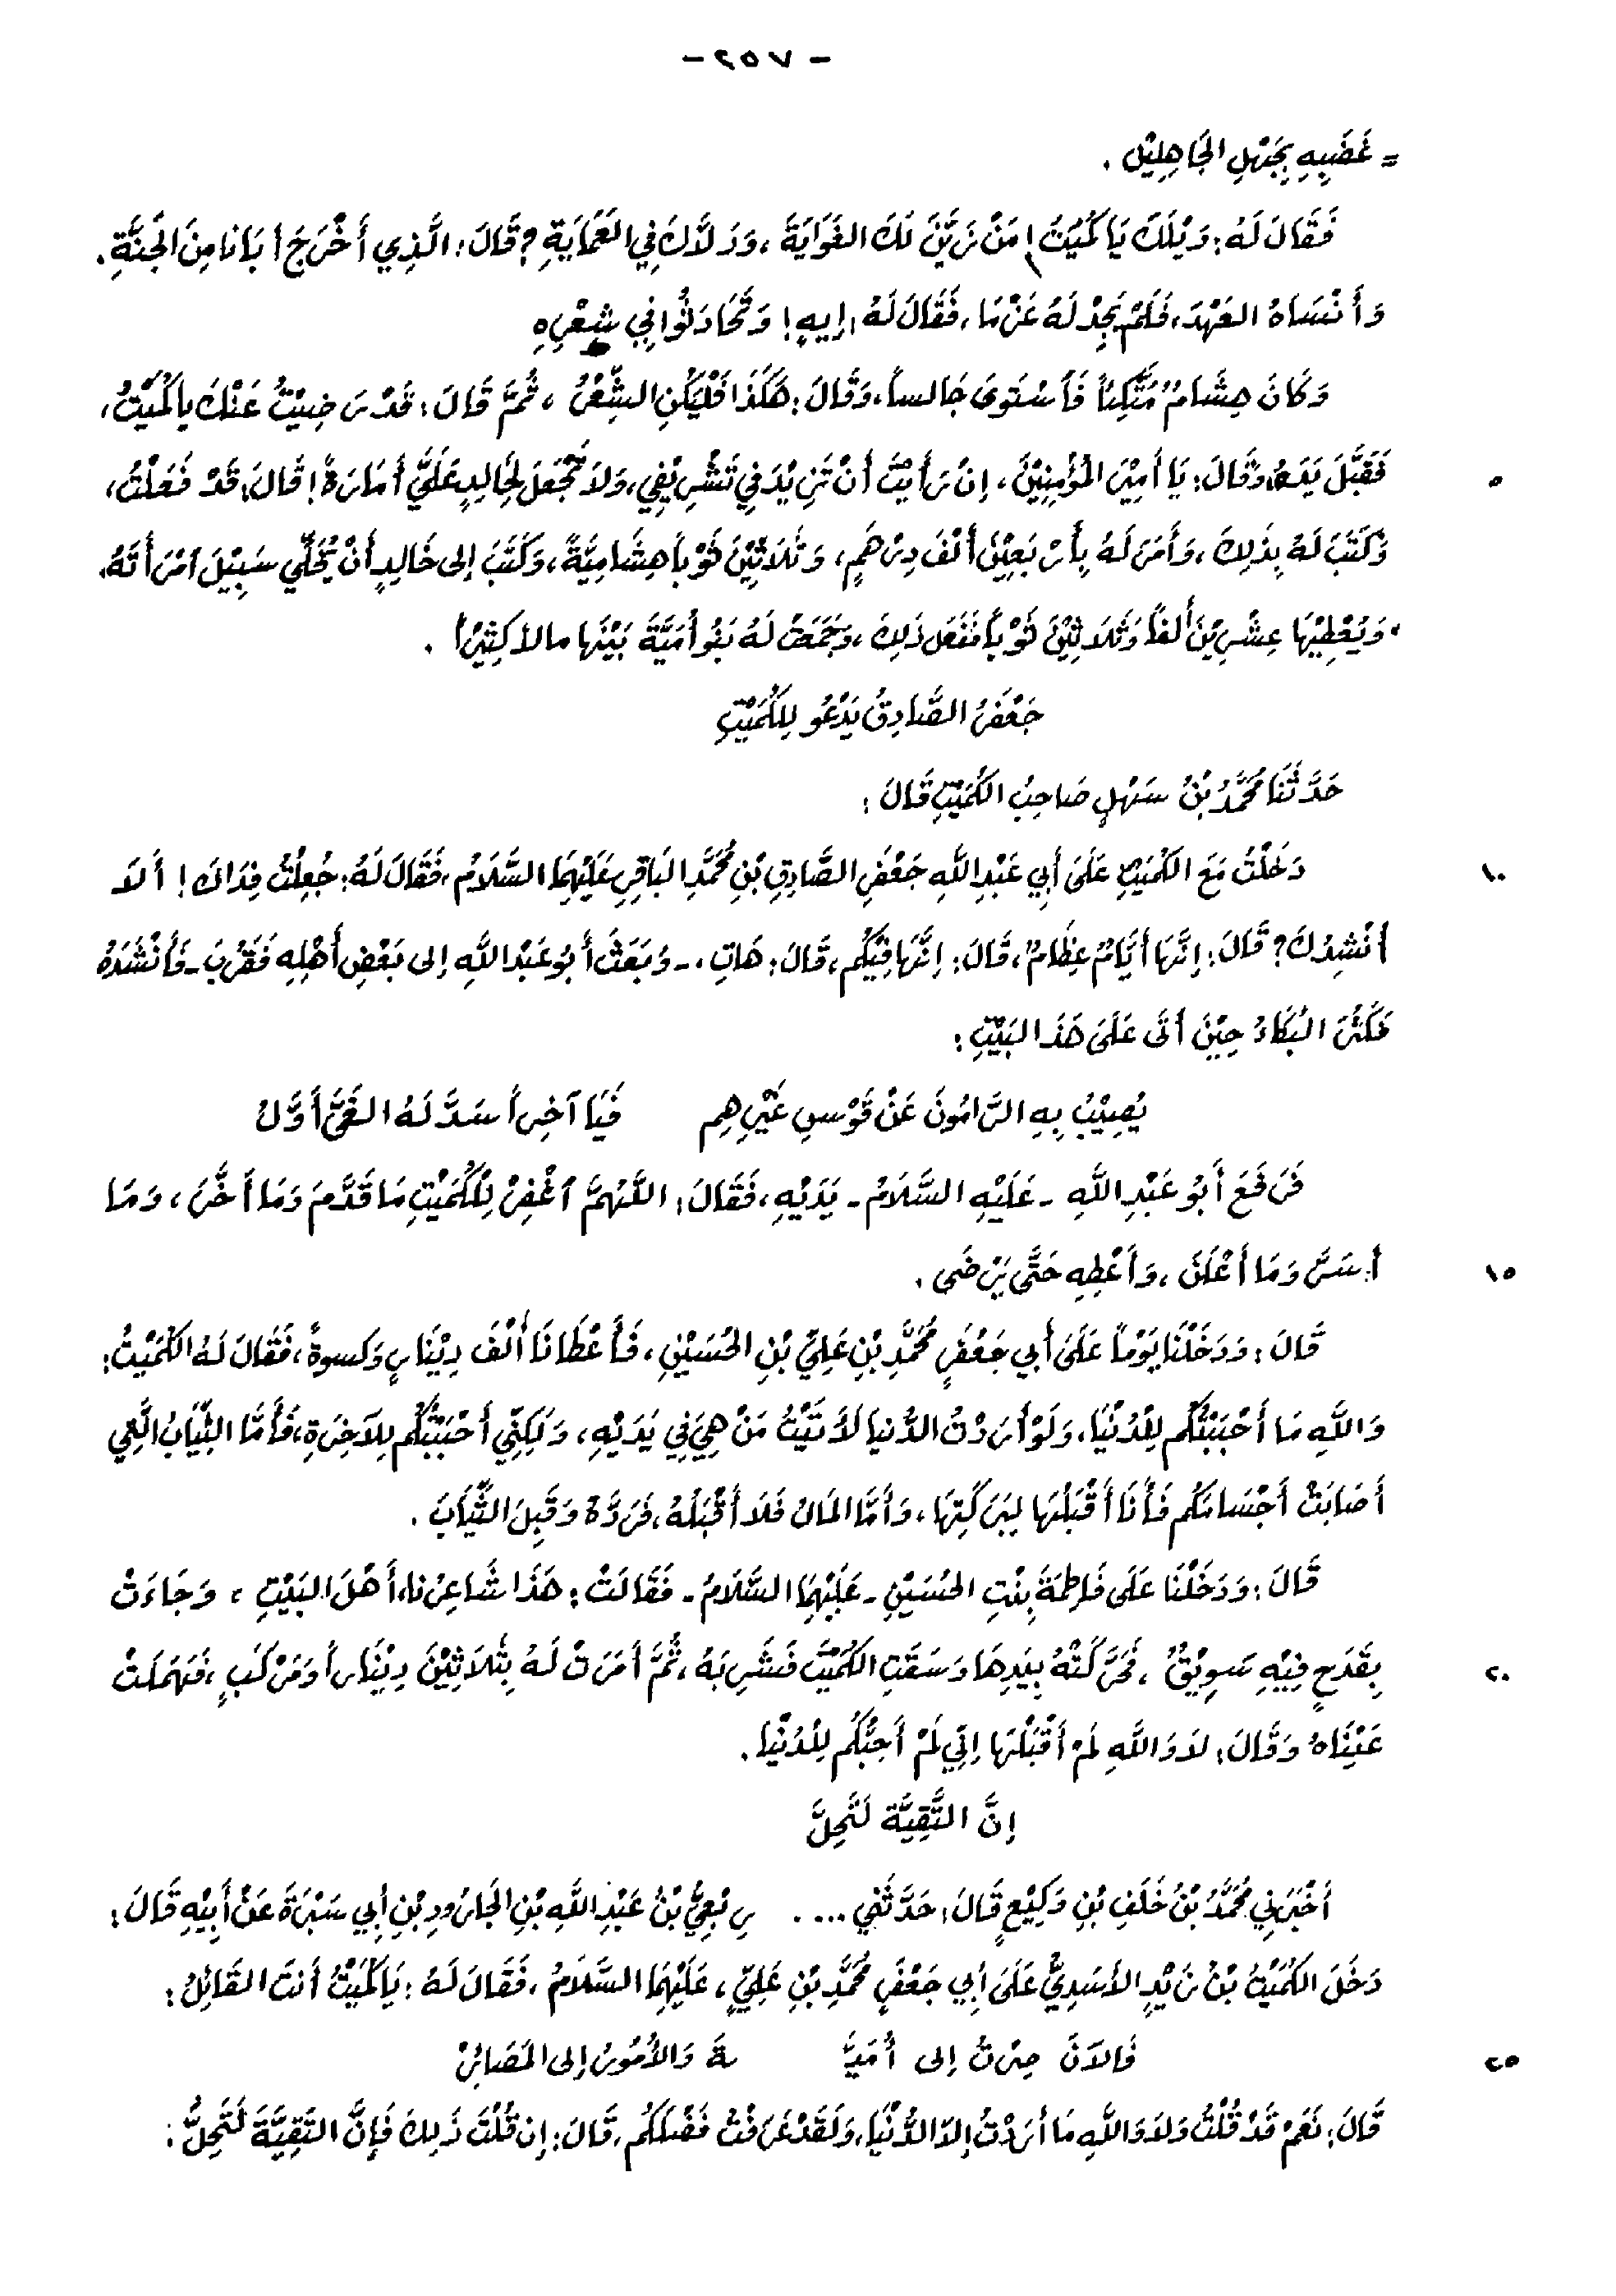 - ٢٥٧ -
= غَضَبِهِ بِجَهْلِ الجَاهِلِيْنَ .
فَقَالَ لَهُ : وَيْلَكَ يَا كُمَيْتُ ! مَنْ زَيَّنَ لَكَ الغَوَايَةَ ، وَدَلَّاكَ فِي العَمَايَةِ ؟ قَالَ : الَّذِي أَخْرَجَ أَبَانَا مِنَ الجَنَّةِ .
وَأَنْسَاهُ العَهْدَ ، فَلَمْ يَجِدْ لَهُ عَزْمَا ، فَقَالَ لَهُ : إيهٍ ! وَتَحَادَثُوا فِي شِعْرِهِ
وَكَانَ هِشَامٌ مُتَّكِئاً فَاَسْتَوىَ جَالساً ، وَقَالَ : هَكَذَا فَلْيَكُنِ الشِّعْرُ ، ثُمَّ قَالَ : قَدْ رَضِيْتُ عَنْكَ يا كُمَيْتُ ،
فَقَبَّلَ يَدَهُ وَقَالَ : يَا أَمِيْرَ المُؤْمِنِيْنَ ، إنْ رَأَيْتَ أَنْ تَزِيْدَ فِي تَشْرِيْفِي ، وَلاَ تَجْعَلَ لِخَالِدٍ عَلَيَّ أَمَارَةً ! قَالَ : قَدْ فَعَلْتُ ، ٥
وَكَتَبَ لَهُ بِذَلِكَ ، وَأَمَرَ لَهُ بِأَرْبَعِيْنَ أَلْفَ دِرْهَمٍ ، وَثَلاَثِيْنَ ثَوْباً هِشَامِيَّةً ، وَكَتَبَ إلى خَالِدٍ أَنْ يُخَلِّي سَبِيْلَ اَمْرَأَتَهُ ،
وَيُعْطِيْهَا عِشْرِيْنَ أَلفاً وَثَلاَثِيْنَ ثَوْباً فَفَعَل ذَلِكَ ، وَجَمَعَتْ لَهُ بَنُو أُمَيَّةَ بَيْنَها مالاً كَثِيْراً .
جَعْفَرُ الصَّادِقُ يَدْعُو لِلكُمَيْتِ
حَدَّثَنَا مُحَمَّدُ بْنُ سَهْلٍ صَاحِبُ الكُمَيْتِ قَالَ :
دَخَلْتُ مَعَ الكُمَيْتِ عَلَىَ أَبِي عَبْدِ اللَّهِ جَعْفَرِ الصَّادِقِ بْنِ مُحَمَّدِ البَاقِرِ عَلَيْهِمَا السَّلاَمُ ، فَقَالَ لَهُ : جُعِلْتُ فِدَاكَ ! أَلاَ ١٠
أُنْشِدُكَ ؟ قَالَ : إنَّهَا أَيَّامٌ عِظَامٌ ، قَالَ : إنَّهَا فِيْكُم ، قَالَ : هَاتِ . - وَبَعَثَ أَبُو عَبْدِ اللَّهِ إلى بَعْضِ أَهْلِهِ فَقَرُبَ - فَأَنْشَدَهُ
فَكَثُرَ البُكَاءُ حِيْنَ أَتَى عَلَىَ هَذَا البَيْتِ :
يُصِيْبُ بِهِ الرَّامُونَ عَنْ قَوْسِ غَيْرِهِم فَيَا آخِراً سَدَّى لَهُ الغَيَّ أَوَّلُ
فَرَفَعَ أَبُو عَبْدِ اللَّهِ - عَلَيْهِ السَّلاَمُ - يَدَيْهِ ، فَقَالَ : اللَّهُمَّ اَغْفِرْ لِلْكُمَيْتِ مَا قَدَّمَ وَمَا أَخَّرَ ، وَمَا
أَسَرَّ وَمَا أَعْلَنَ ، وَأَعْطِهِ حَتَّى يَرْضَى . ١٥
قَالَ : وَدَخَلْنَا يَوْماً عَلَىَ أَبِي جَعْفَرٍ مُحَمَّدِ بْنِ عَلِيِّ بْنِ الحُسَيْنِ ، فَأَعْطَانَا أَلْفَ دِيْنَارٍ وَكسوةً ، فَقَالَ لَهُ الكُمَيْتُ :
وَاللَّهِ مَا أَحْبَبْتُكُم لِلدُّنْيَا ، وَلَوْ أَرَدْتُ الدُّنْيا لَأَتَيْتُ مَنْ هِيَ فِي يَدَيْهِ ، وَلَكِنِّي أَحْبَبْتُكُم لِلآخِرَةِ ، فَأَمَّا الثِّيَابُ الَّتِي
أَصَابَتْ أَجْسَامَكُم فَأَنَا أَقْبَلُهَا لِبَرَكَتِهَا ، وَأَمَّا المَالُ فَلاَ أَقْبَلُهُ ، فَرَدَّهُ وَقَبِلَ الثِّيَابَ .
قَالَ : وَدَخَلْنَا عَلَى فَاطِمَةَ بِنْتِ الحُسَيْنِ - عَلَيْهِمَا السَّلاَمُ - فَقَالَتْ : هَذَا شَاعِرُنا ، أَهْلَ البَيْتِ ، وَجَاءَتْ
بِقَدَحٍ فِيْهِ سَوِيْقٌ ، فَحَرَّكَتْهُ بِيَدِهَا وَسَقَتِ الكُمَيْتَ فَشَرِبَهُ ، ثُمَّ أَمَرَتْ لَهُ بِثَلاَثِيْنَ دِيْنَاراً وَمَرْكَبٍ ، فَهَمَلَتْ ٢٠
عَيْنَاهُ وَقَالَ : لاَ وَاللَّهِ لَمْ أَقْبَلْهَا إنِّي لَمْ أُحِبُّكُم لِلدُّنْيَا .
إنَّ التَّقِيَّة لَتَحِلَّ
أَخْبَرَنِي مُحَمَّدُ بْنُ خَلَفِ بْنِ وَكِيْعٍ قَالَ : حَدَّثَنِي .... رِبْعِيُّ بْنُ عَبْدِ اللَّهِ بْنِ الجَارُودِ بْنِ أَبِي سَبْرَةَ عَنْ أَبِيْهِ قَالَ :
دَخَلَ الكُمَيْتُ بْنُ زَيْدٍ الأَسَدِيُّ عَلَىَ أَبِي جَعْفَرٍ مُحَمَّدِ بْنِ عَلِيٍّ ، عَلَيْهِمَا السَّلاَمُ ، فَقَالَ لَهُ : يَا كُمَيْتُ أَنتَ القَائِلُ :
فَالآنَ صِرْتُ إلى أُمَيَّـ ـةَ وَالأُمُورُ إلى المَصَائِرْ ٢٥
قَالَ : نَعَمْ قَدْ قُلْتُ وَلاَ وَاللَّهِ مَا أَرَدْتُ إلاّ الدُّنْيَا ، وَلَقَدْ عَرَفْتُ فَضْلَكُمْ ، قَالَ : إن قُلْتَ ذَلِكَ فَإنَّ التَّقِيَّةَ لَتَحِلُّ .